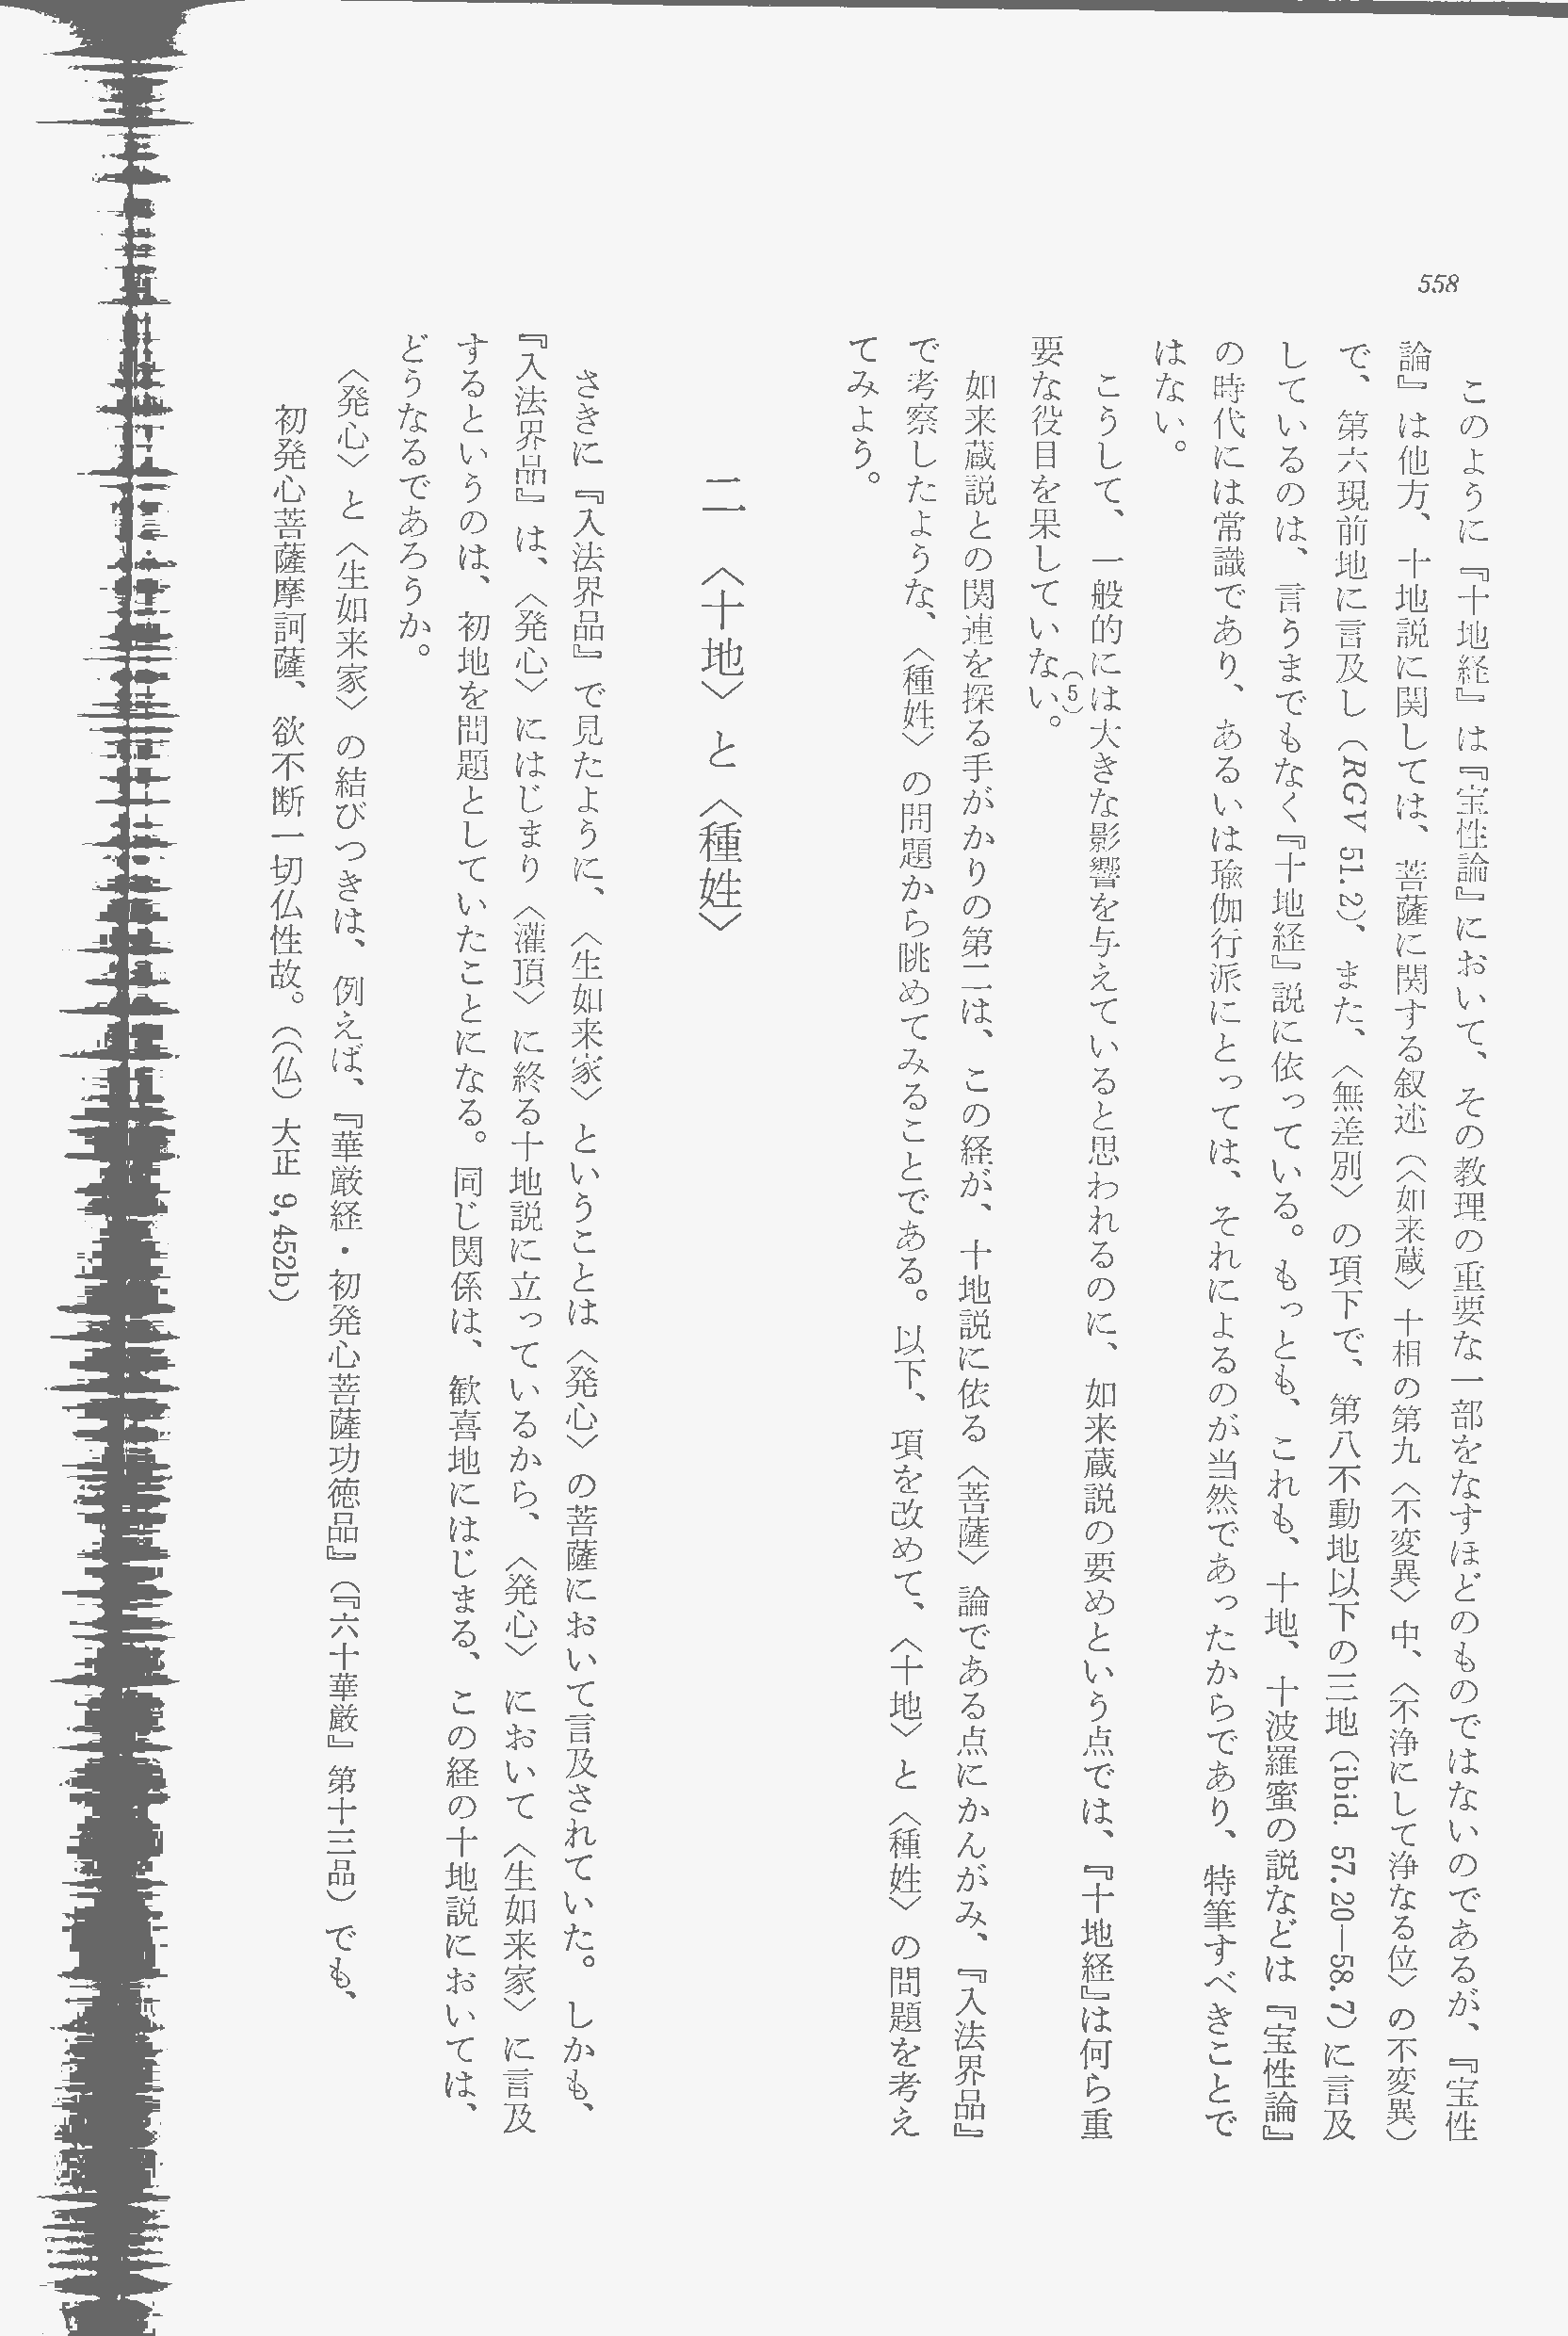 558
このように『十地経』は『宝性論』において、その教理の重要な一部をなすほどのものではないのであるが、『宝性
論』は他方、十地説に関しては、菩薩に関する叙述（〈如来蔵〉十相の第九〈不変異〉中、〈不浄にして浄なる位〉の不変異）
で、第六現前地に言及し（RGV 51.2）、また、〈無差別〉の項下で、第八不動地以下の三地（ibid. 57.20—58.7）に言及
しているのは、言うまでもなく『十地経』説に依っている。もっとも、これも、十地、十波羅蜜の説などは『宝性論』
の時代には常識であり、あるいは瑜伽行派にとっては、それによるのが当然であったからであり、特筆すべきことで
はない。
こうして、一般的には大きな影響を与えていると思われるのに、如来蔵説の要めという点では、『十地経』は何ら重
要な役目を果していない（5）。
如来蔵説との関連を探る手がかりの第二は、この経が、十地説に依る〈菩薩〉論である点にかんがみ、『入法界品』
で考察したような、〈種姓〉の問題から眺めてみることである。以下、項を改めて、〈十地〉と〈種姓〉の問題を考え
てみよう。
二　〈十地〉と〈種姓〉
さきに『入法界品』で見たように、〈生如来家〉ということは〈発心〉の菩薩において言及されていた。しかも、
『入法界品』は、〈発心〉にはじまり〈灌頂〉に終る十地説に立っているから、〈発心〉において〈生如来家〉に言及
するというのは、初地を問題としていたことになる。同じ関係は、歓喜地にはじまる、この経の十地説においては、
どうなるであろうか。
〈発心〉と〈生如来家〉の結びつきは、例えば、『華厳経・初発心菩薩功徳品』（『六十華厳』第十三品）でも、
初発心菩薩摩訶薩、欲不断一切仏性故。（〈仏〉大正 9, 452b）